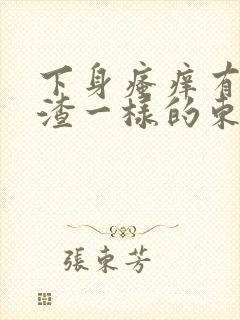 下身瘙痒有
渣一样的东
張東芳